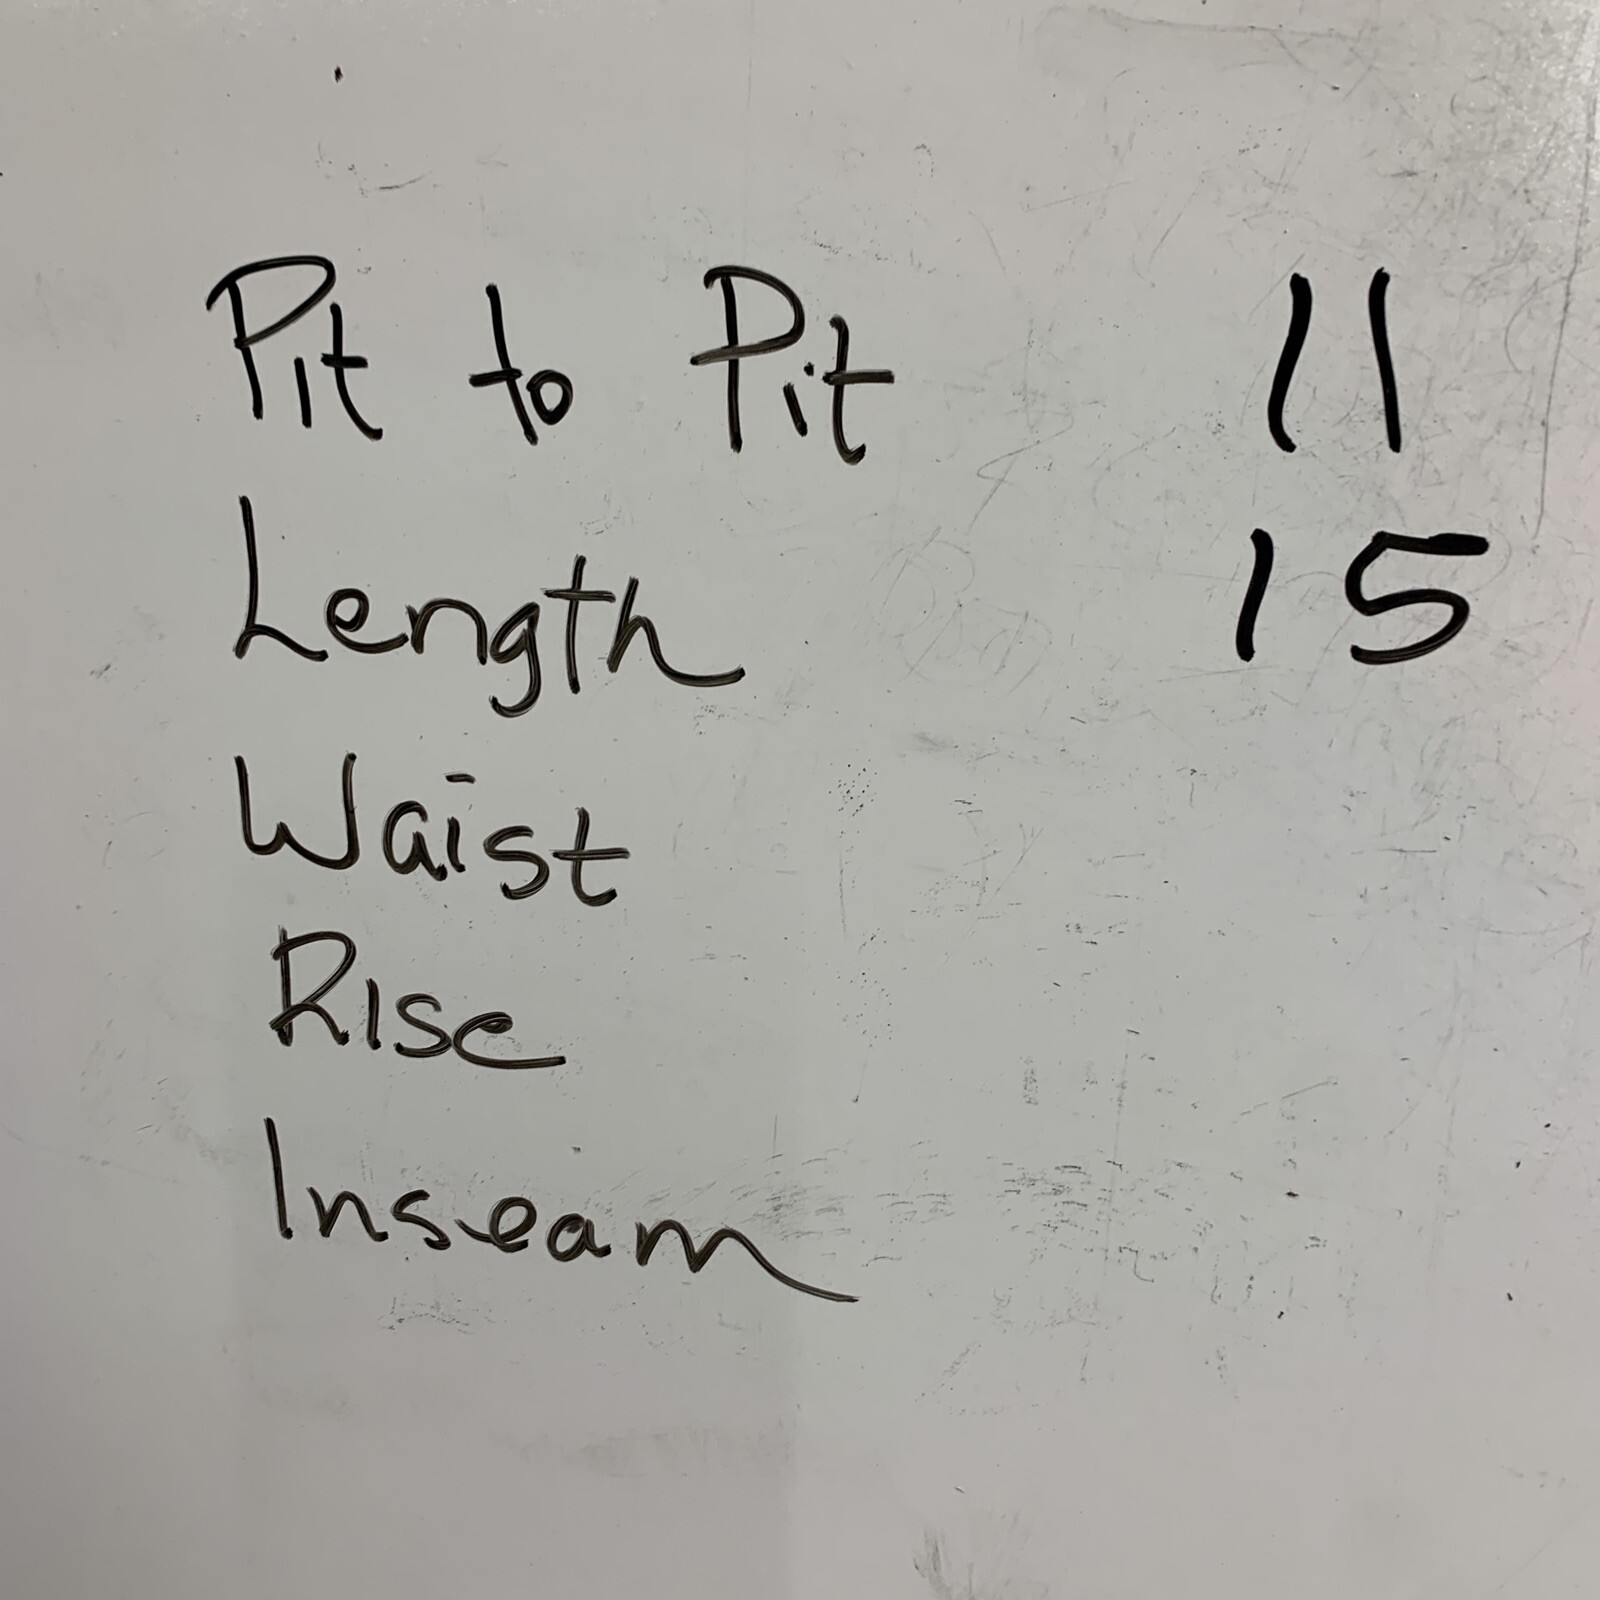 Pit to Pit 11
Length 15
Waist
Rise
Inseam